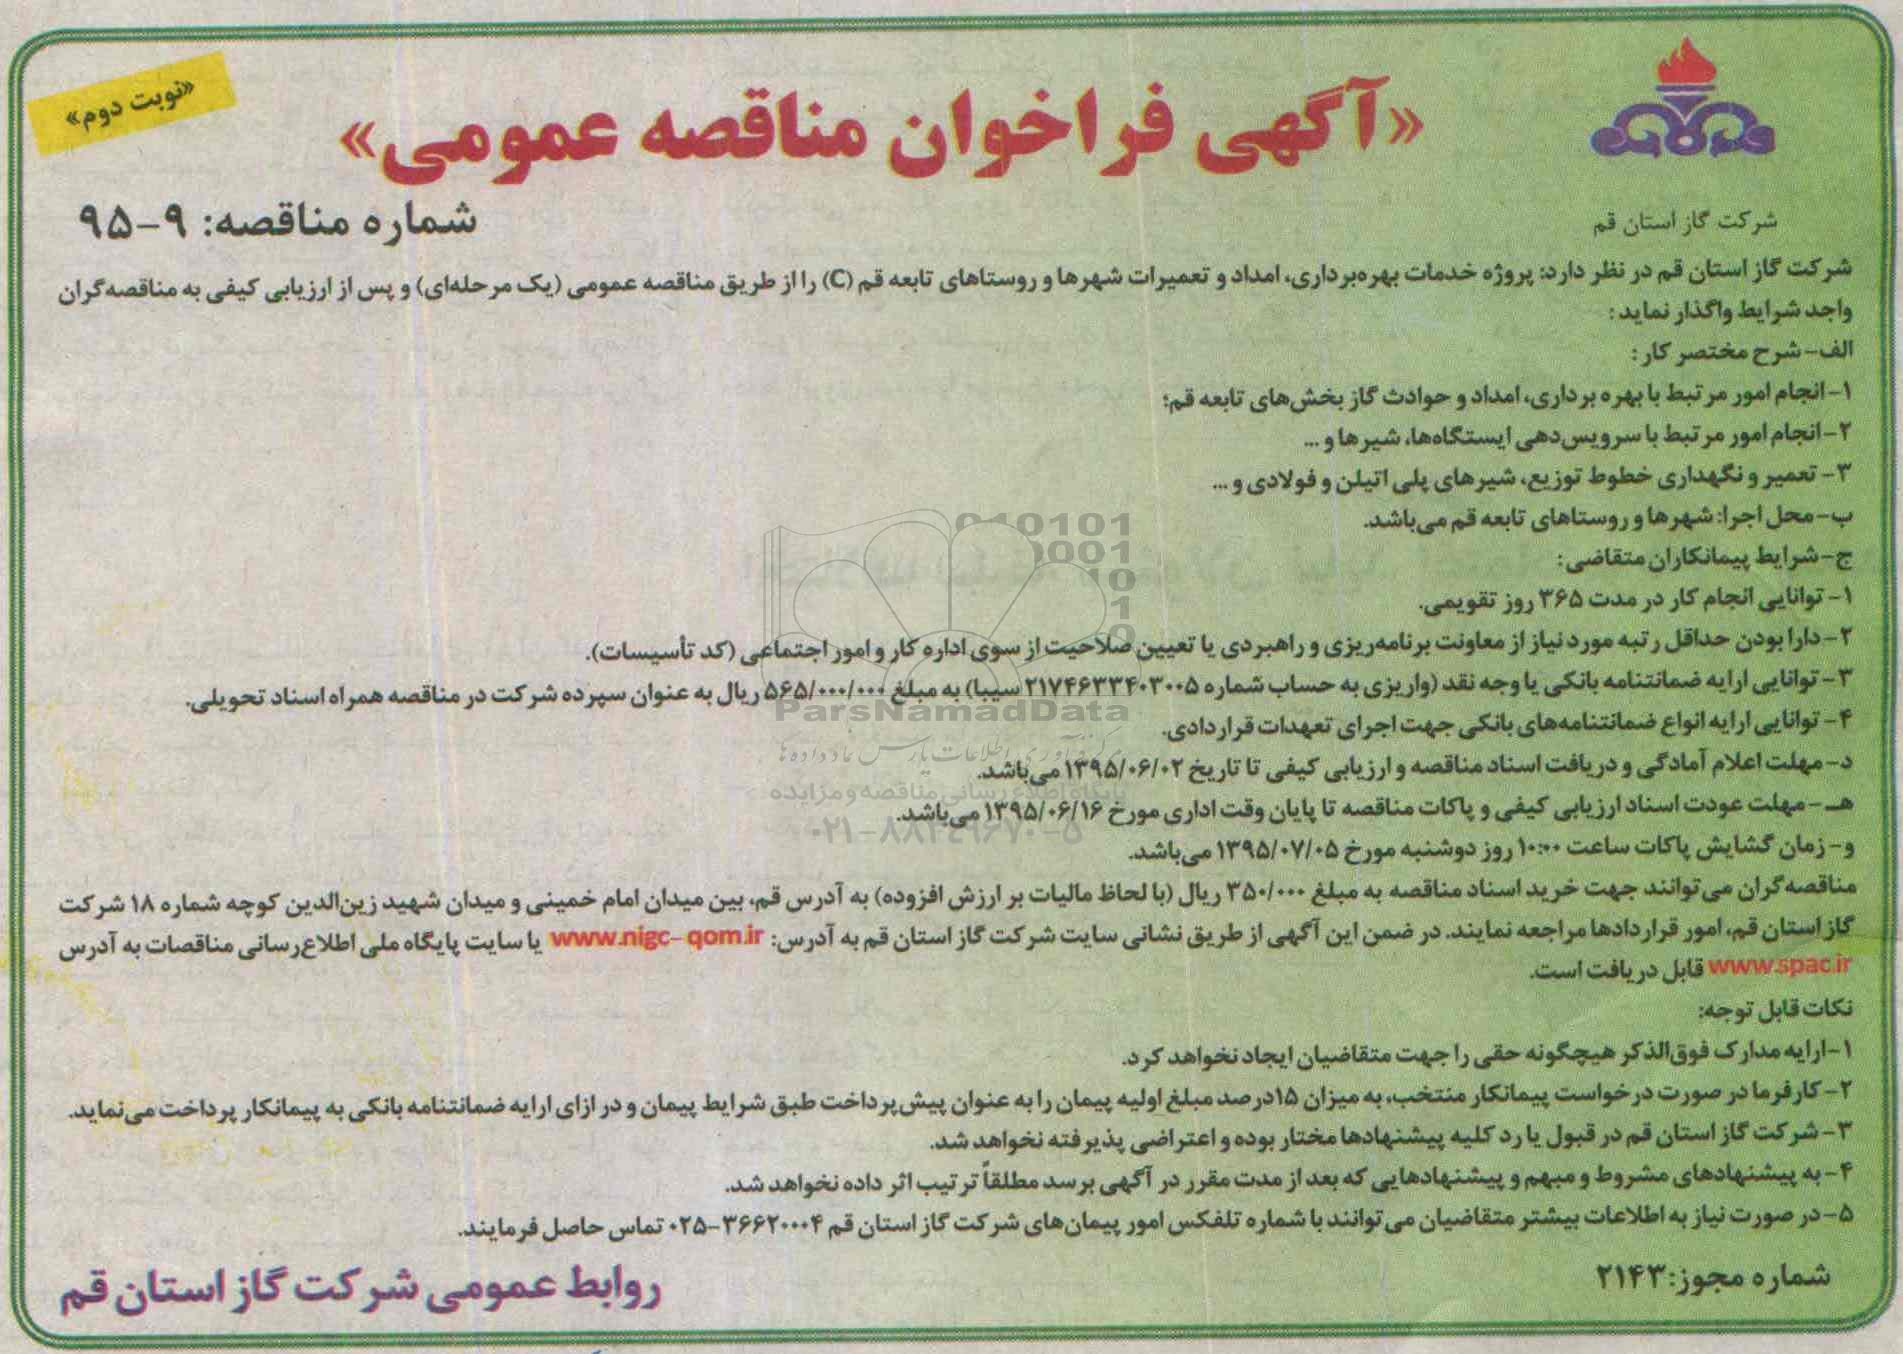 «نوبت دوم»
«آگهی فراخوان مناقصه عمومی»
شرکت گاز استان قم
شماره مناقصه: ۹-۹۵
شرکت گاز استان قم در نظر دارد: پروژه خدمات بهره‌برداری، امداد و تعمیرات شهرها و روستاهای تابعه قم (C) را از طریق مناقصه عمومی (یک مرحله‌ای) و پس از ارزیابی کیفی به مناقصه‌گران
واجد شرایط واگذار نماید :
الف- شرح مختصر کار :
۱- انجام امور مرتبط با بهره برداری، امداد و حوادث گاز بخش‌های تابعه قم؛
۲- انجام امور مرتبط با سرویس‌دهی ایستگاه‌ها، شیرها و ...
۳- تعمیر و نگهداری خطوط توزیع، شیرهای پلی اتیلن و فولادی و ...
ب- محل اجرا: شهرها و روستاهای تابعه قم می‌باشد.
ج- شرایط پیمانکاران متقاضی:
۱- توانایی انجام کار در مدت ۳۶۵ روز تقویمی.
۲- دارا بودن حداقل رتبه مورد نیاز از معاونت برنامه‌ریزی و راهبردی یا تعیین صلاحیت از سوی اداره کار و امور اجتماعی (کد تأسیسات).
۳- توانایی ارایه ضمانتنامه بانکی یا وجه نقد (واریزی به حساب شماره ۲۱۷۴۶۳۳۴۰۳۰۰۵ سیبا) به مبلغ ۵۶۵/۰۰۰/۰۰۰ ریال به عنوان سپرده شرکت در مناقصه همراه اسناد تحویلی.
۴- توانایی ارایه انواع ضمانتنامه‌های بانکی جهت اجرای تعهدات قراردادی.
د- مهلت اعلام آمادگی و دریافت اسناد مناقصه و ارزیابی کیفی تا تاریخ ۱۳۹۵/۰۶/۰۲ می‌باشد.
هـ - مهلت عودت اسناد ارزیابی کیفی و پاکات مناقصه تا پایان وقت اداری مورخ ۱۳۹۵/۰۶/۱۶ می‌باشد.
و- زمان گشایش پاکات ساعت ۱۰:۰۰ روز دوشنبه مورخ ۱۳۹۵/۰۷/۰۵ می‌باشد.
مناقصه‌گران می‌توانند جهت خرید اسناد مناقصه به مبلغ ۳۵۰/۰۰۰ ریال (با لحاظ مالیات بر ارزش افزوده) به آدرس قم، بین میدان امام خمینی و میدان شهید زین‌الدین کوچه شماره ۱۸ شرکت
گاز استان قم، امور قراردادها مراجعه نمایند. در ضمن این آگهی از طریق نشانی سایت شرکت گاز استان قم به آدرس: www.nigc-qom.ir یا سایت پایگاه ملی اطلاع‌رسانی مناقصات به آدرس
www.spac.ir قابل دریافت است.
نکات قابل توجه:
۱- ارایه مدارک فوق‌الذکر هیچگونه حقی را جهت متقاضیان ایجاد نخواهد کرد.
۲- کارفرما در صورت درخواست پیمانکار منتخب، به میزان ۱۵درصد مبلغ اولیه پیمان را به عنوان پیش‌پرداخت طبق شرایط پیمان و در ازای ارایه ضمانتنامه بانکی به پیمانکار پرداخت می‌نماید.
۳- شرکت گاز استان قم در قبول یا رد کلیه پیشنهادها مختار بوده و اعتراضی پذیرفته نخواهد شد.
۴- به پیشنهادهای مشروط و مبهم و پیشنهادهایی که بعد از مدت مقرر در آگهی برسد مطلقاً ترتیب اثر داده نخواهد شد.
۵- در صورت نیاز به اطلاعات بیشتر متقاضیان می‌توانند با شماره تلفکس امور پیمان‌های شرکت گاز استان قم ۳۶۶۲۰۰۰۴-۰۲۵ تماس حاصل فرمایند.
شماره مجوز: ۲۱۴۳
روابط عمومی شرکت گاز استان قم
ParsNamadData
مرکز فرآوری اطلاعات پارس نماد داده ها
پایگاه اطلاع رسانی مناقصه و مزایده
۰۲۱-۸۸۳۴۹۶۷۰-۵